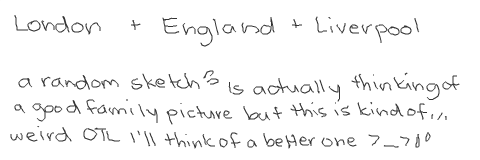 London + England + Liverpool
a random sketch is actually thinking of
a good family picture but this is kind of...
weird OTL I'll think of a better one >_>